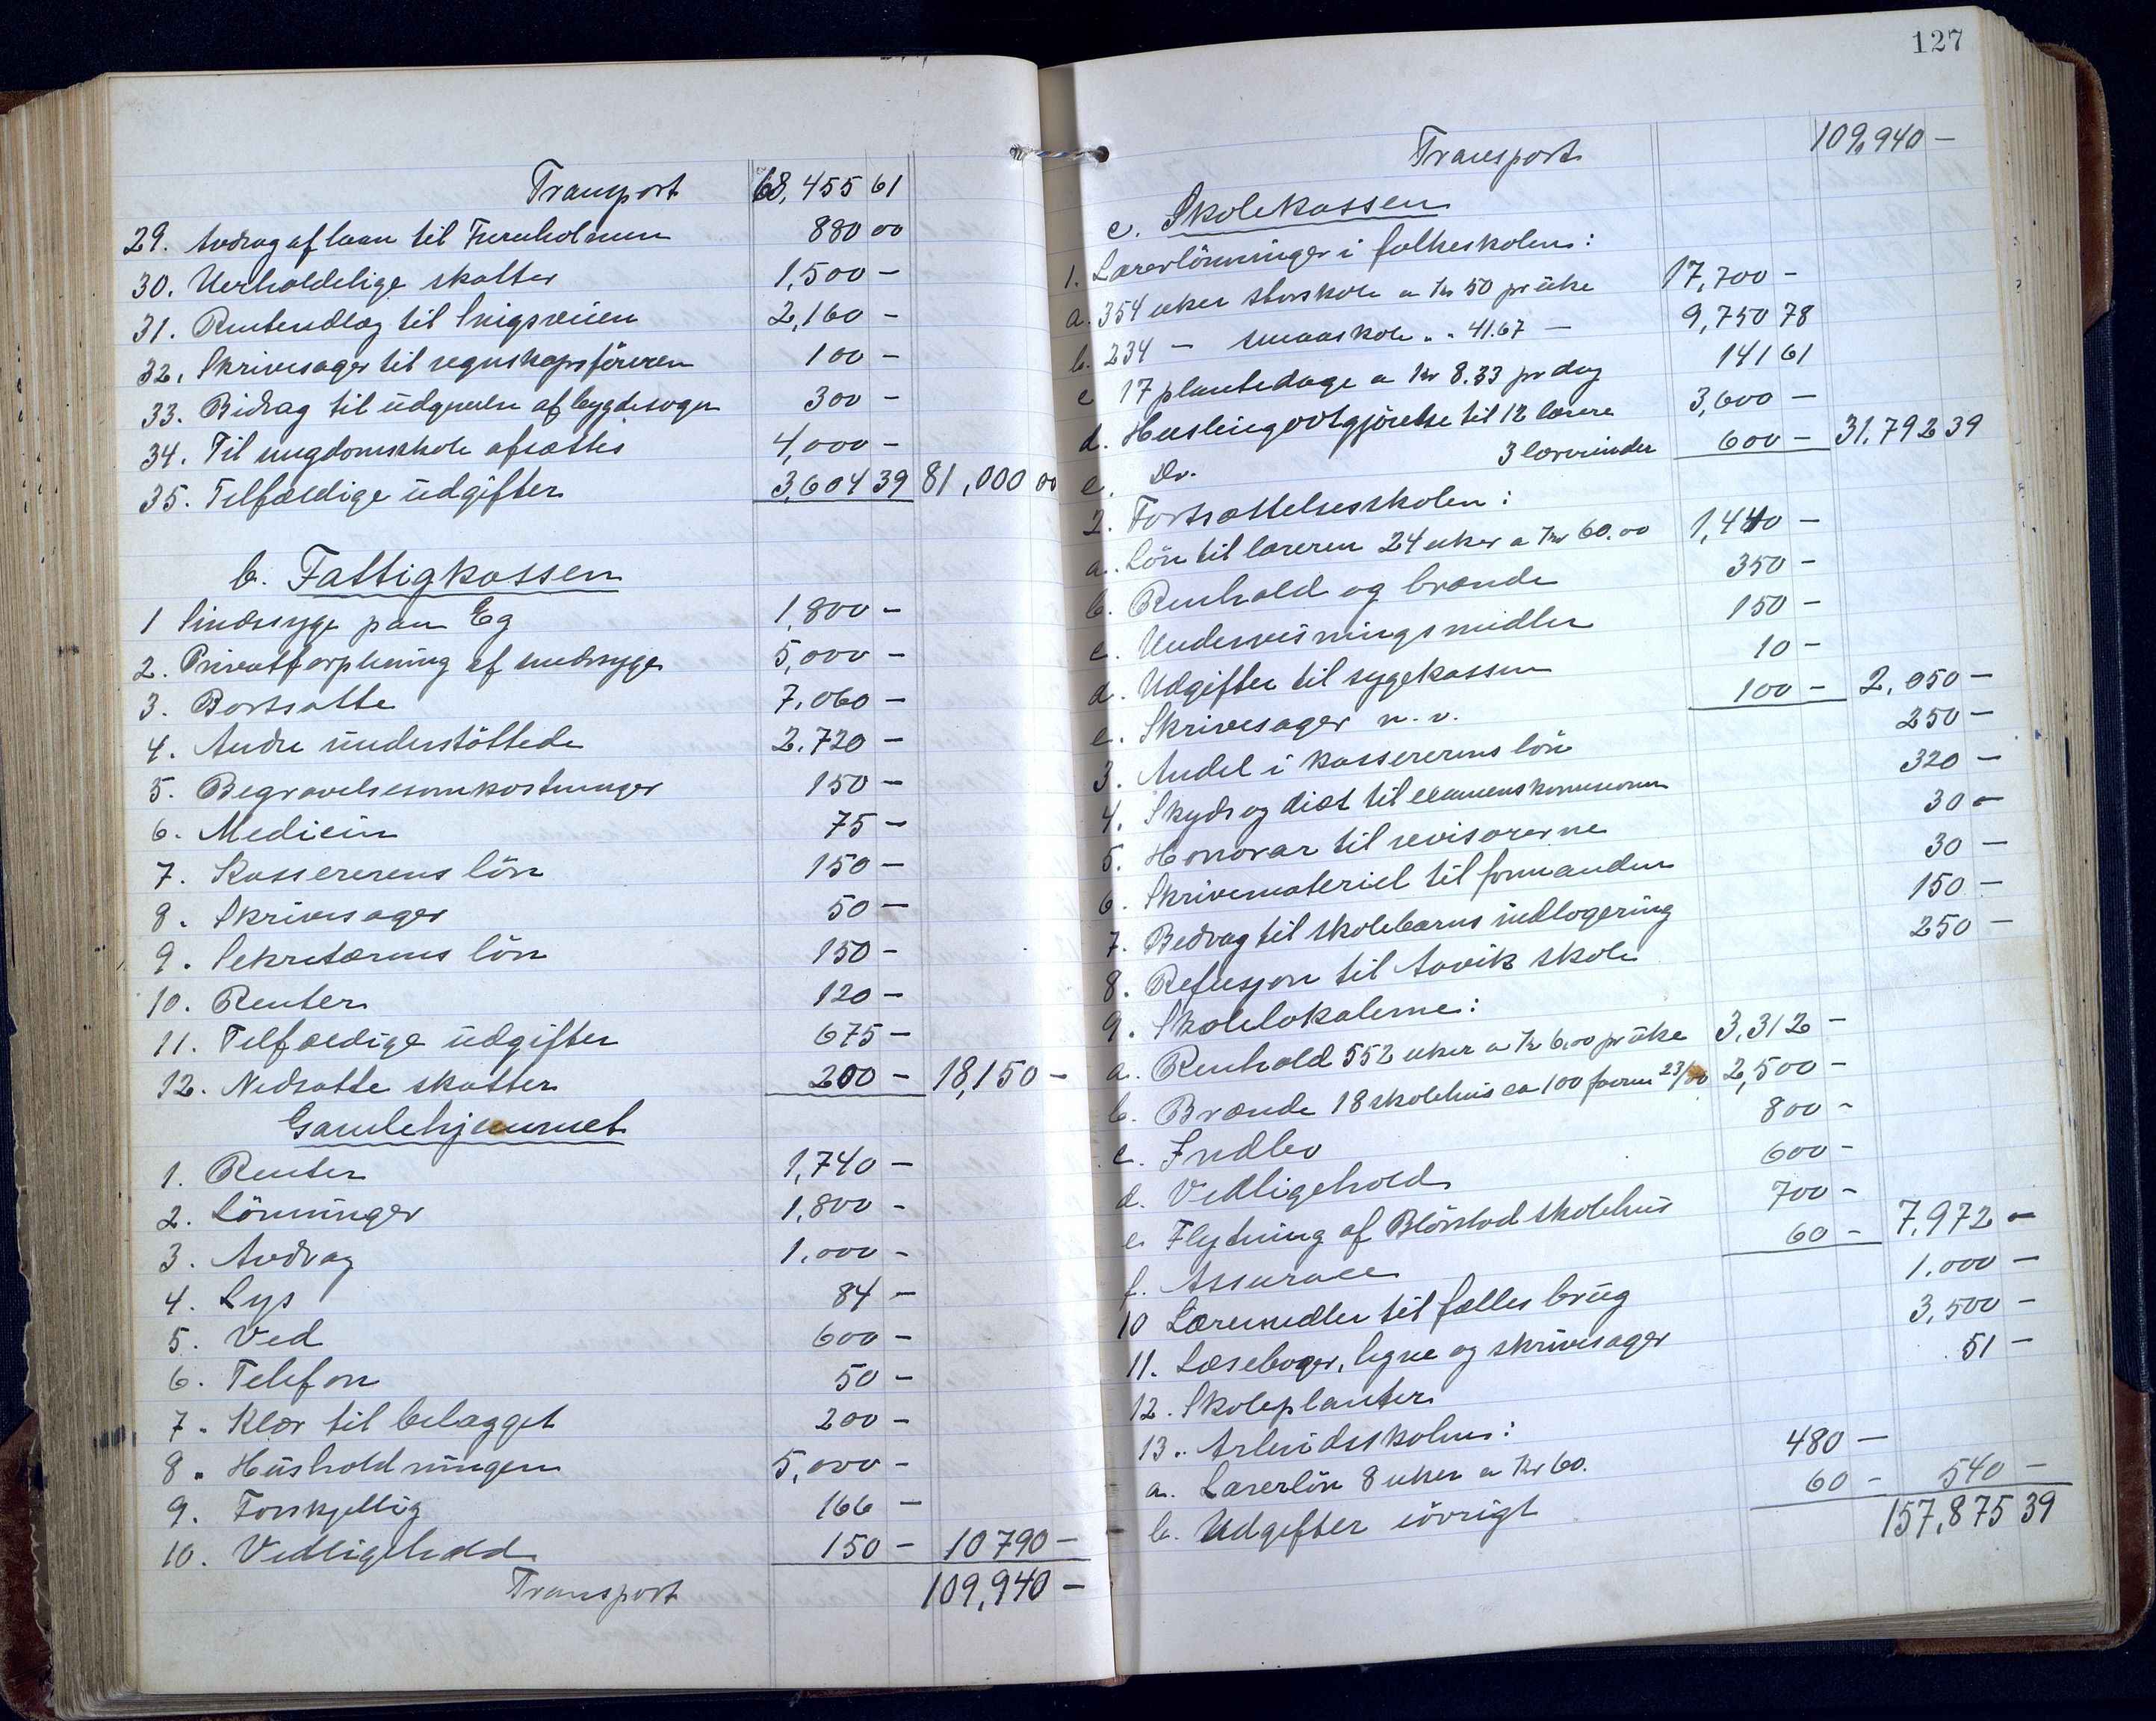 Transport 68,455 61
29. Avdrag af laan til Furuholmen 880 00
30. Uerholdelige skatter 1,500 -
31. Renteudlæg til Snigsveien 2,160 -
32. Skrivesager til regnskapsföreren 100 -
33. Bidrag til udgivelse af bygdesogn 300 -
34. Til ungdomsskole afsættes 4,000 -
35. Tilfældige udgifter 3,604 39 81,000 00
b. Fattigkassen
1 Sindssyge paa Eg 1,800 -
2. Privatforpleining af sindssyge 5,000 -
3. Bortsatte 7,060 -
4. Andre understöttede 2.720 -
5. Begravelsesomkostninger 150 -
6. Medicin 75 -
7. Kassererens lön 150 -
8. Skrivesager 50 -
9. Sekretærens lön 150 -
10. Renter 120 -
11. Tilfældige udgifter 675 -
12. Nedsatte skatter 200 - 18,150 -
Gamlehjemmet
1. Renter 1,740 -
2. Lönninger 1,800 -
3. Avdrag 1,000 -
4. Lys 84 -
5. Ved 600 -
6. Telefon 50 -
7. Klær til belægget 200 -
8. Husholdningen 5,000 -
9. Forskjellig 166 -
10. Vedligehold 150 - 10790 -
Transport 109,940 -
127
Transport 109,940 -
c. Skolekassen
1. Lærerlönninger i folkeskolen:
a. 354 uker storskole a Kr 50 pr uke 17,700 -
b. 234 - smaaskole " " 41.67 - 9,750 78
c 17 plantedage a Kr 8.33 pr dag 141 61
d. Husleiegodtgjörelse til 12 lærere 3,600 -
e. Do. 3 lærerinder 600 - 31,792 39
2. Fortsættelsesskolen:
a. Lön til læreren 24 uker a Kr 60.00 1,440 -
b. Renhold og brænde 350 -
c. Undervisningsmidler 150 -
d. Udgifter til sygekassen 10 -
e. Skrivesager n. v. 100 - 2,050 -
3. Andel i kassererens lön 250 -
4. Skyds og diæt til examenskommisionen 320 -
5. Honorar til revisorerne 30 -
6. Skrivemateriel til formanden 30 -
7. Bedrag til skolebarns indlogering 150 -
8. Refusjon til Aavik skole 250 -
9. Skolelokalerne:
a. Renhold 552 uker a Kr 6.00 pr uke 3,312 -
b. Brænde 18 skolehus ca 100 favne 2,500 -
c. Indbo 800 -
d. Vedligehold 600 -
e. Flytning af Blörstad skolehus 700 -
f. Assurace 60 - 7,972 -
10 Læremidler til fælles brug 1.000 -
11. Læsebøger, regne og skrivesager 3,500 -
12. Skoleplanter 51 -
13. Arbeidsskolen:
a. Lærerlön 8 uker a Kr 60. 480 -
b. Udgifter iövrigt 60 - 540 -
157,875 39